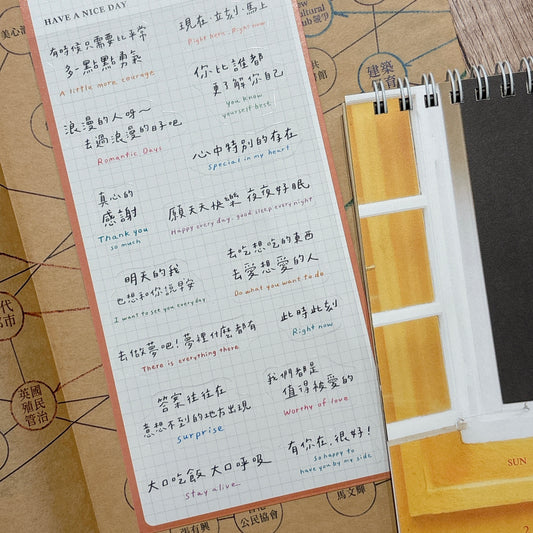 HAVE A NICE DAY
有時候只需要比平常
多一點點勇氣
A little more courage
現在.立刻.馬上
Right here, Right now
你比誰都
更了解你自己
you know
yourself best
浪漫的人呀~
去過浪漫的日子吧
Romantic Days
心中特別的存在
special in my heart
真心的
感謝
Thank you
so much
願天天快樂 夜夜好眠
Happy every day, good sleep every night
明天的我
也想和你說早安
I want to see you everyday
去吃想吃的東西
去愛想愛的人
Do what you want to do
此時此刻
Right now
去做夢吧!夢裡什麼都有
There is everything there
答案往往在
意想不到的地方出現
surprise
我們都是
值得被愛的
Worthy of love
大口吃飯 大口呼吸
stay alive
有你在,很好!
so happy to
have you by my side
美心
Cultural
Club 競爭
共
館
建築
育
代
市
英國
殖民
管治
張有興
公民協會
馬文輝
SUN
2